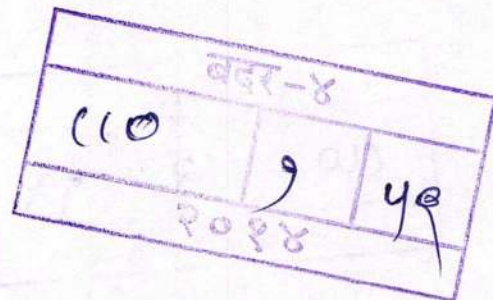 बदर-४
८८० १ ५९
२०१४